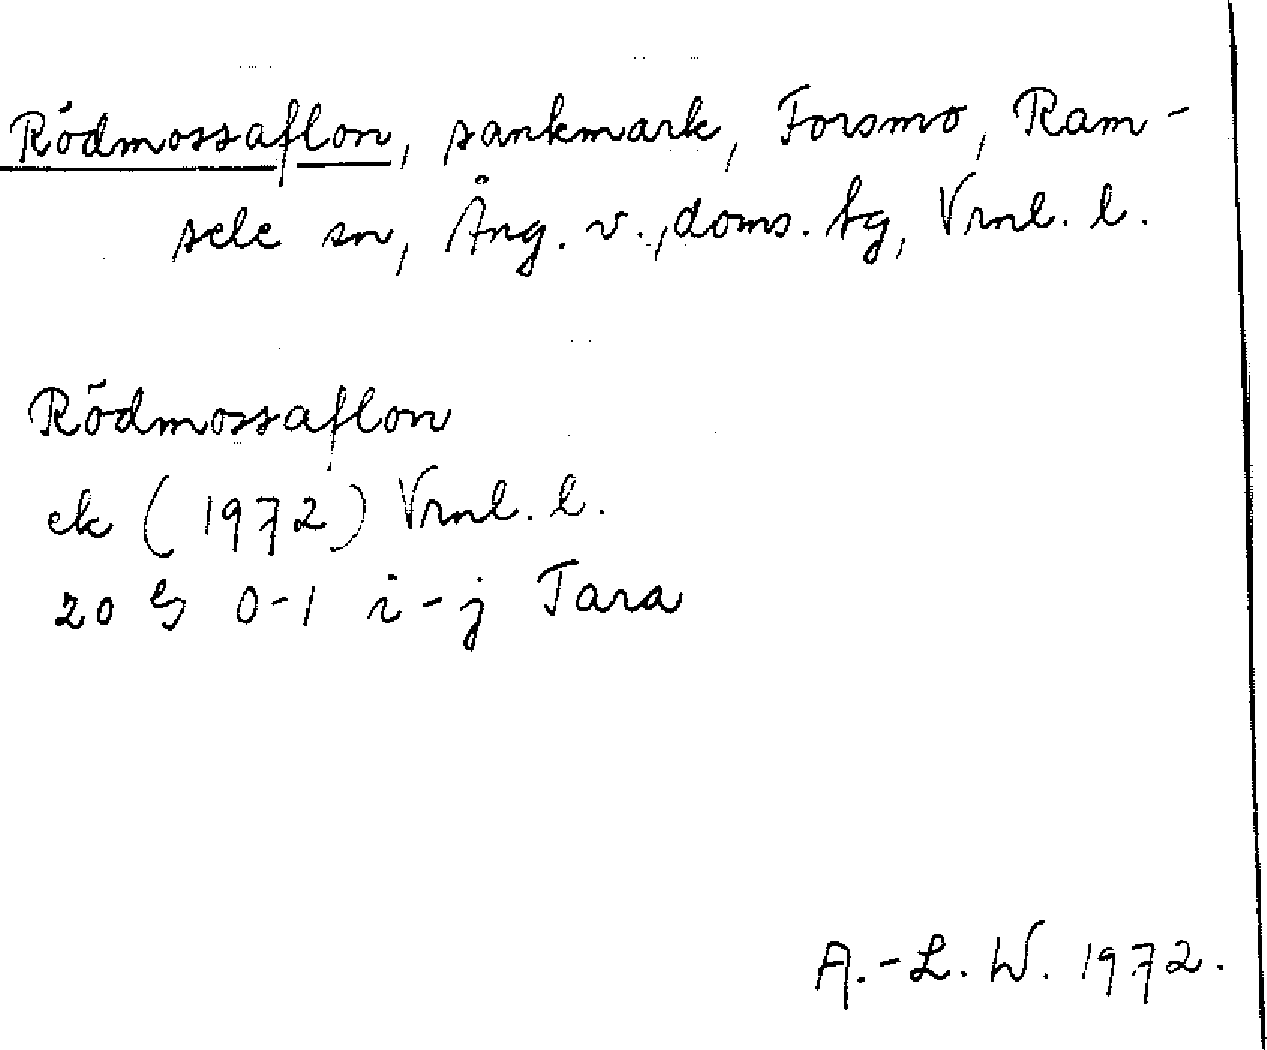 Rödmossaflon, sankmark, Forsmo, Ram-
sele sn, Ång. v., doms. tg, Vrnl. l.
Rödmossaflon
ek (1972) Vrnl. l.
20 G 0-1 i-j Tara
A.-L. W. 1972.